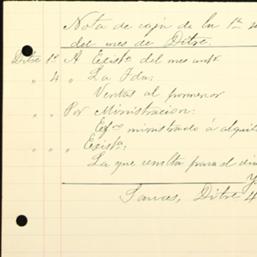 Nota de caja de la 1ª 4
del mes de Dibre.
Dibre 1º A Existª del mes antr.
" 4 " La Fda:
Ventas al pormenor
" " Por Ministracion:
Efos ministrado á alqui
" " " Existª:
La que resulta para el di
y
Sauces, Dibre 4